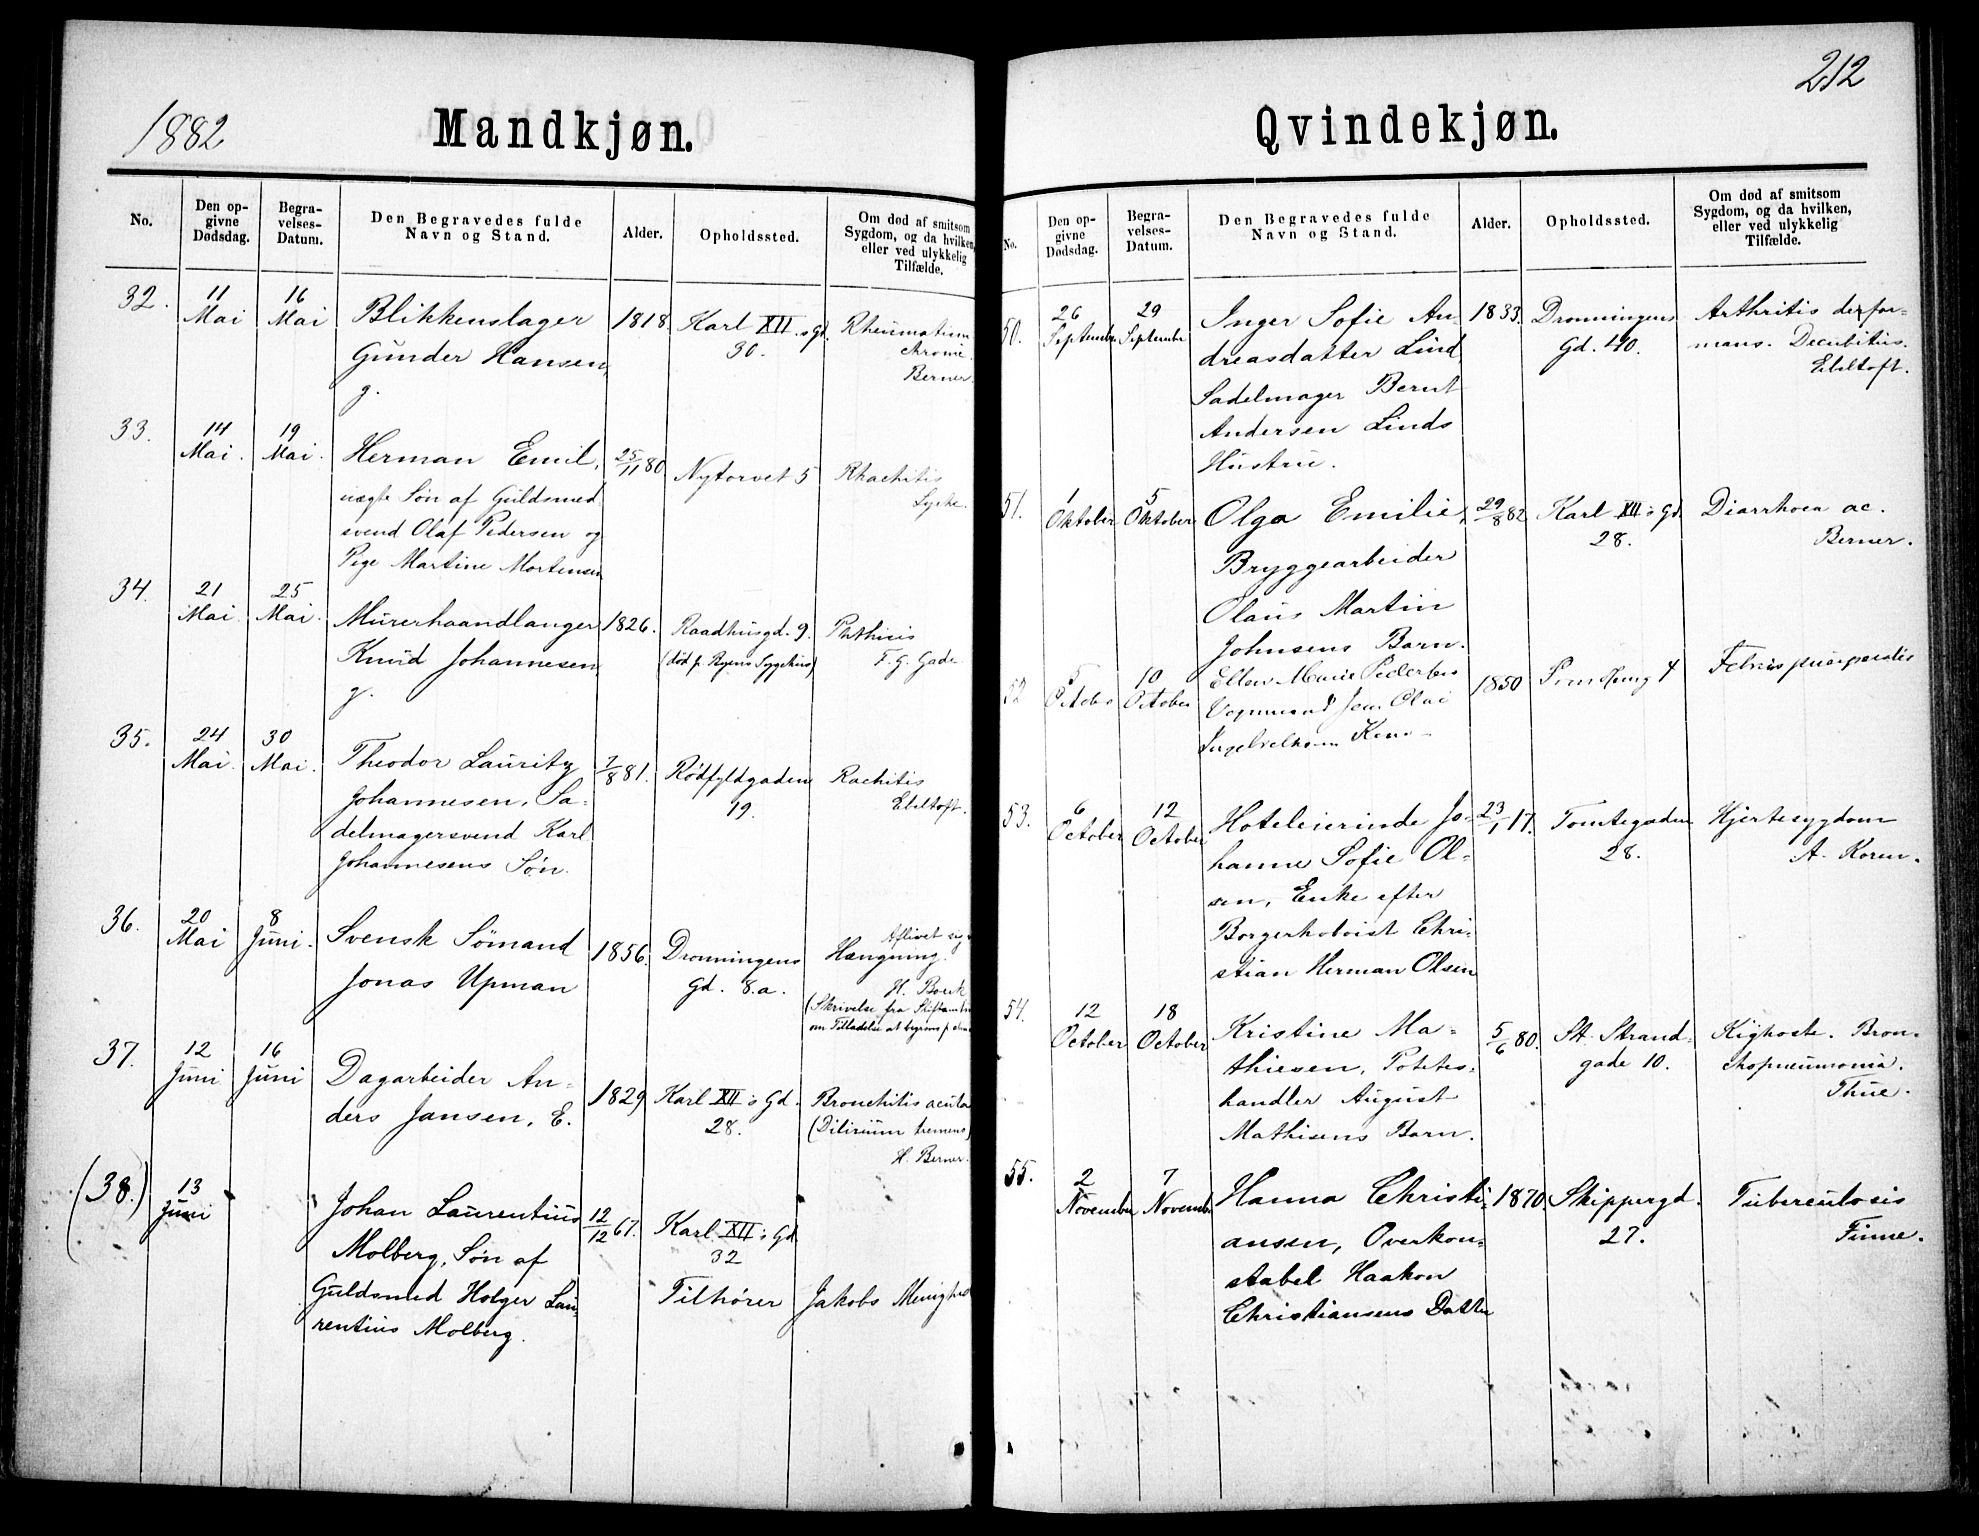 1882
Mandkjøn.
No.
Den op-
givne
Dødsdag.
Begra-
velses-
Datum.
Den Begravedes fulde
Navn og Stand.
Alder.
Opholdssted.
Om død af smitsom
Sygdom, og da hvilken,
eller ved ulykkelig
Tilfælde.
32.
11
Mai
16
Mai
Blikkenslager
Gunder Hansen,
g.
1818.
Karl XII.s Gd.
30.
Berner.
33.
14
Mai.
19
Mai.
Herman Emil,
uægte Søn af Guldsmed
svend Olaf Pedersen og
Pige Martine Mortensen
25/11 80
Nytorvet 5
Rhachitis
34.
21
Mai
25
Mai.
Murerhaandlanger
Knud Johannesen
g.
1826.
Raadhusgd. 9.
(død p. Byens Sygehus)
Phthisis
F. G. Gade
35.
24
Mai.
30
Mai.
Theodor Lauritz
Johannesen, Sa-
delmagersvend Karl
Johannesens Søn.
7/8 81.
Rødfyldgaden
19.
Rachitis
Edeltoft.
36.
20
Mai
8
Juni.
Svensk Sömand
Jonas Upman
1856.
Dronningens
Gd. 8.a.
Aflivet sig v
Hængning.
H. Boeck
(Skrivelse fra
om Tilladelse at
37.
12
Juni
16
Juni
Dagarbeider An-
ders Jansen, E.
1829
Karl XII's Gd.
28.
Bronchitis acuta
(Dilirium tremens)
H. Berner.
(38.)
13
Juni
Johan Laurentius
Molberg, Søn af
Guldsmed Holger Lau-
rentius Molberg.
12/12 67.
Karl XII's Gd
32
Tilhører Jakobs Menighed
212
Qvindekjøn.
No.
Den op-
givne
Dødsdag.
Begra-
velses-
Datum.
Den Begravedes fulde
Navn og Stand.
Alder.
Opholdssted.
Om død af smitsom
Sygdom, og da hvilken,
eller ved ulykkelig
Tilfælde.
50.
26
September
29
September
Inger Sofie An-
dreasdatter Lind
Sadelmager Bernt
Andersen Linds
Hustru.
1833.
Dronningens
Gd. 40.
Arthritis defor-
mans. Decubitus.
Edeltoft.
51.
1
Oktober
5
Oktober
Olga Emilie,
Bryggearbeider
Olaus Martin
Johnsens Barn.
29/8 82
Karl XII's Gd.
28.
Diarrhoea ac.
Berner.
52
5
October
10
October
Ellen Marie
1850
Febris puerperalis
53.
6
October
12
October
Hoteleierinde Jo-
hanne Sofie Ol-
sen, Enke efter
Borgerhoboist Chri-
stian Herman Olsen
23/1 17.
Tomtegaden
28.
Hjertesygdom
A. Koren.
54.
12
October
18
October
Kristine Ma-
thiesen, Potetes-
handler August
Mathisens Barn.
5/6 80.
St. Strand-
gade 10.
Kighoste. Bron-
chopneumonia.
Thue.
55.
2
November
7
November
Hanna Christi-
ansen, Overkon-
stabel Haakon
Christiansens Datter
1870.
Skippergd.
27.
Tuberculosis
Finne.